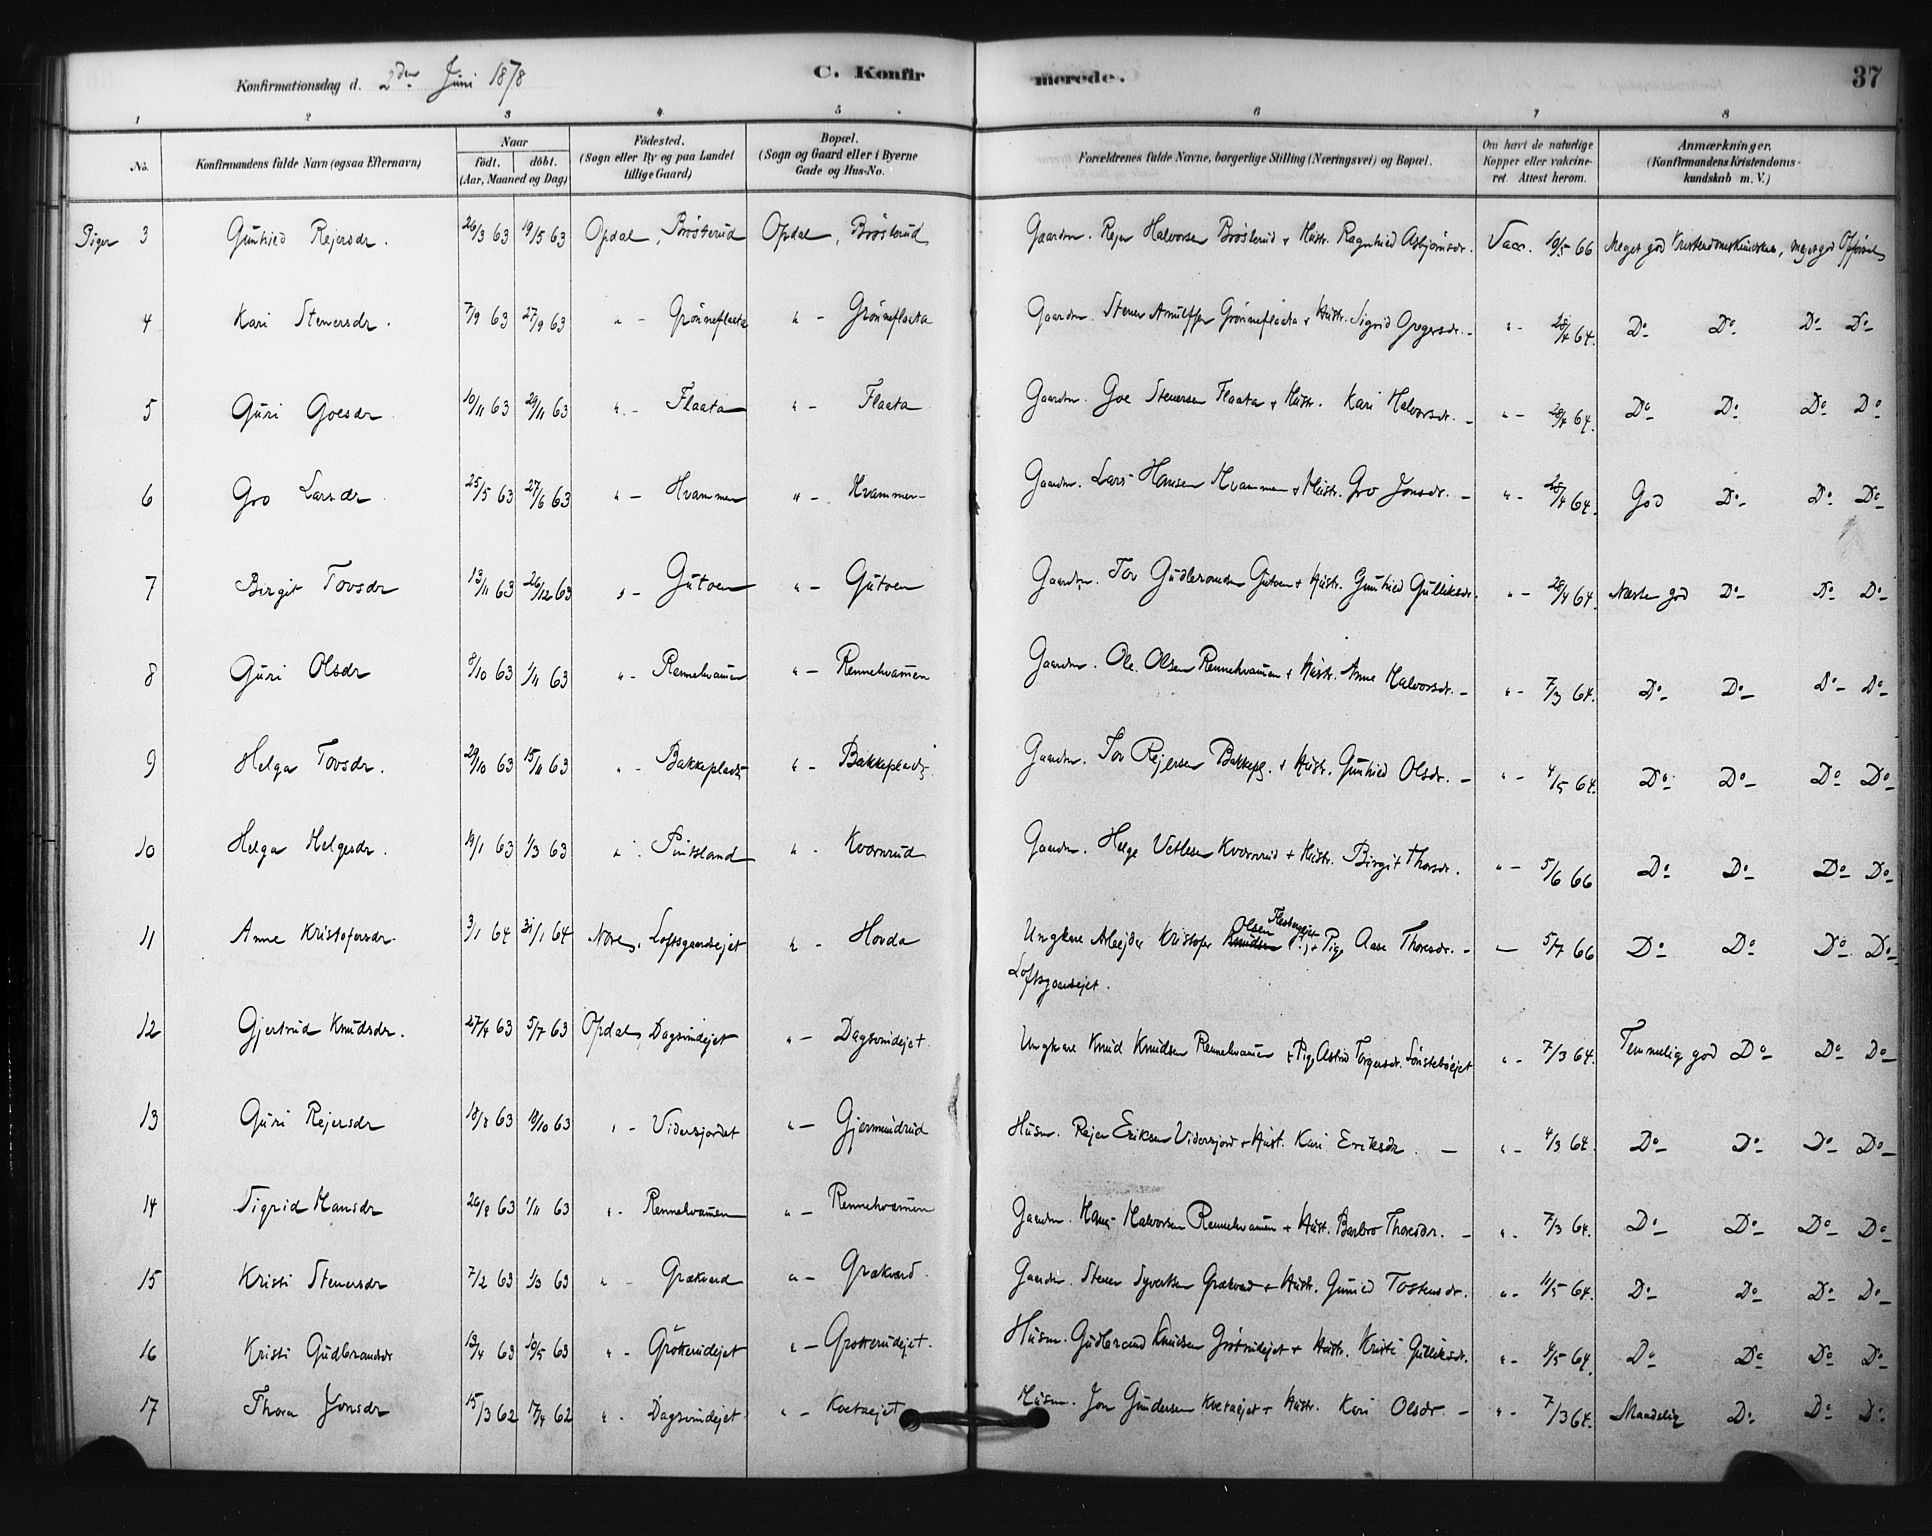 Konfirmationsdag d. 2den Juni 1878
C. Konfirmerede.
37
1 2 3 4 5 6 7 8
No. Konfirmandens fulde Navn (ogsaa Efternavn) Naar født. døbt. (Aar, Maaned og Dag) Fødested. (Sogn eller By og paa Landet tillige Gaard) Bopæl. (Sogn og Gaard eller i Byerne Gade og Hus-No. Forældrenes fulde Navne, borgerlige Stilling (Næringsvei) og Bopæl. Om havt de naturlige Kopper eller vakcineret. Attest herom. Anmærkninger. (Konfirmandens Kristendomskundskab m. V.)
Piger 3 Gunhild Rejersdr. 26/3 63 19/5 63 Opdal, Brösterud Opdal, Brösterud Gaardm. Rejer Halvorsen Brösterud + Hustr. Ragnhild Asbjörnsdr. Vacc. 10/5 66 Meget god Kristendomskundskab, meget god Opförsel
4 Kari Stenersdr. 7/9 63 27/9 63 " - Grönneflaata " - Grönneflaata Gaardm. Stener Arnulfsen Grönneflaata + Hustr. Sigrid Gregersdr. - " - 28/4 64. Do Do Do Do
5 Guri Goesdr 10/11 63 29/11 63 " - Flaata " - Flaata Gaardm. Goe Stenersen Flaata + Hustr. Kari Halvorsdr. - " - 28/4 64. Do Do Do Do
6 Gro Larsdr 25/5 63 27/6 63 " - Hvammen " - Hvammen Gaardm. Lars Hansen Hvammen + Hustr. Gro Jonsdr. - " - 28/4 64. God Do Do Do
7 Birgit Tovsdr 13/11 63 26/12 63 " - Gutoen " - Gutoen Gaardm. Tov Gudbrandsen Gutoen + Hustr. Gunhild Gulliksdr. " - 28/4 64. Næsten god Do Do Do
8 Guri Olsdr 8/10 63 1/11 63 " - Rennehvamen " - Rennehvamen Gaardm. Ole Olsen Rennehvamen + Hustr. Anne Halvorsdr. - " - 7/3 64. Do Do Do Do
9 Helga Tovsdr. 29/10 63 15/11 63 " - Bakkeplads " - Bakkeplads Gaardm. Tov Rejersen Bakkepl. + Hustr. Gunhild Olsdr. - " - 4/5 64. Do Do Do Do
10 Helga Helgesdr. 19/1 63 1/3 63 " - " - Kvarnrud Gaardm. Helge Vetlesen Kvarnrud + Hustr. Birgit Thorsdr. " - 5/6 66 Do Do Do Do
11 Anne Kristofersdr. 3/1 64 31/1 64 Nore, Loftsgaardsejet " - Hovda Ungkare Arbejder Kristofer Olsen + Pige Aase Thoresdr. - - 5/7 66 Do Do Do Do
Loftsgaardsejet.
12 Gjertrud Knudsdr. 27/4 63 5/7 63 Opdal, Dagsvindejet " - Dagsvindejet Ungkare Knud Knudsen Rennehvamen + Pige Astrid Torgersdr. Sönsteböejet " - 7/3 64. Temmelig god Do Do Do
13 Guri Rejersdr 18/8 63 18/10 63 " - Vidersjordet " - Gjermundrud Husm. Rejer Eriksen Vidersjord + Hust. Kari Eriksdr. - " - 4/3 64. Do Do Do Do
14 Sigrid Hansdr 26/8 63 1/11 63 " - Rennehvamen " - Rennehvamen Gaardm. Hans Halvorsen Rennehvamen + Hust. Barbro Thoresdr. - " - 7/3 64. Do Do Do Do
15 Kristi Stenersdr 7/2 63 1/3 63 " - Grækvard " - Grækvard. Gaardm. Stener Syvertsen Grækvard + Hustr. Gunild Tostensdr. " - 11/5 64. Do Do Do Do
16 Kristi Gudbrandsdr 13/4 63 10/5 63 " - Grotterudejet " - Grotterudejet. Husm. Gudbrand Knudsen + Hustr. Kristi Gulliksdr. " - 4/5 64. Do Do Do Do
17 Thora Jonsdr 15/3 62 17/4 62 " - Dagsvindejet " - Kvetaejet Husm. Jon Gundersen Kvetaejet + Hustr. Kari Olsdr. - " - 7/3 64. Maadelig Do Do Do